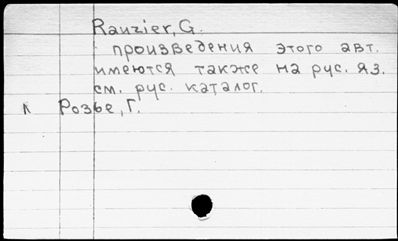 Rauzier, G.
произведения этого авт.
имеются также на рус. яз.
см. рус. каталог.
л Розье, Г.